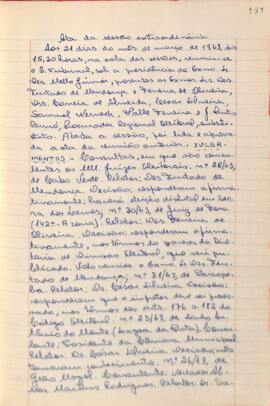 191
Ata da sessão extraordinária
Aos 21 dias do mês de março de 1963, às
15,20 horas, na sala das sessões, reuniu-se
o E. Tribunal, sob a presidência do Exmo. Sr.
Des. Mello Júnior, presentes os Exmos. Srs. Des.
Furtado de Mendonça e Ferreira de Oliveira,
Drs. Correia de Almeida, Cesar Silveira,
Samuel Werneck,
Procurador Regional Eleitoral, substi-
tuto. Aberta a sessão, foi lida e aprova-
da a ata da reunião anterior. JULGA-
MENTOS - Consultas, em que são consulen-
tes os MM. Juízes Eleitorais: nº 28/63,
de Cabo Verde. Relator: Des. Furtado de
Mendonça. Decisão: responderam afirma-
tivamente: haverá eleição distrital em Ser-
nº 30/63, de Juiz de Fora
(142ª zona). Relator: Des. Ferreira de
Oliveira. Decisão: responderam afirma-
tivamente, nos têrmos do parecer da Dire-
toria de Divisão Eleitoral, que será pu-
blicado. Voto vencido o Exmo. Sr. Des. Fur-
tado de Mendonça; nº 31/63, de Paraope-
ba. Relator: Dr. Cesar Silveira. Decisão:
responderam que o
nos têrmos dos arts. 176 a 182 do
Código Eleitoral. nº 23/63, de Santo An-
tônio do Monte (Lagoa da Prata). Consu-
lente: Presidente da Câmara Municipal.
Relator: Dr. Cesar Silveira. Decisão: não
tomaram conhecimento. nº 26/63, de
Grão Mogol. Consulente: Vereador
Martins Rodrigues. Relator: Dr. Sa-